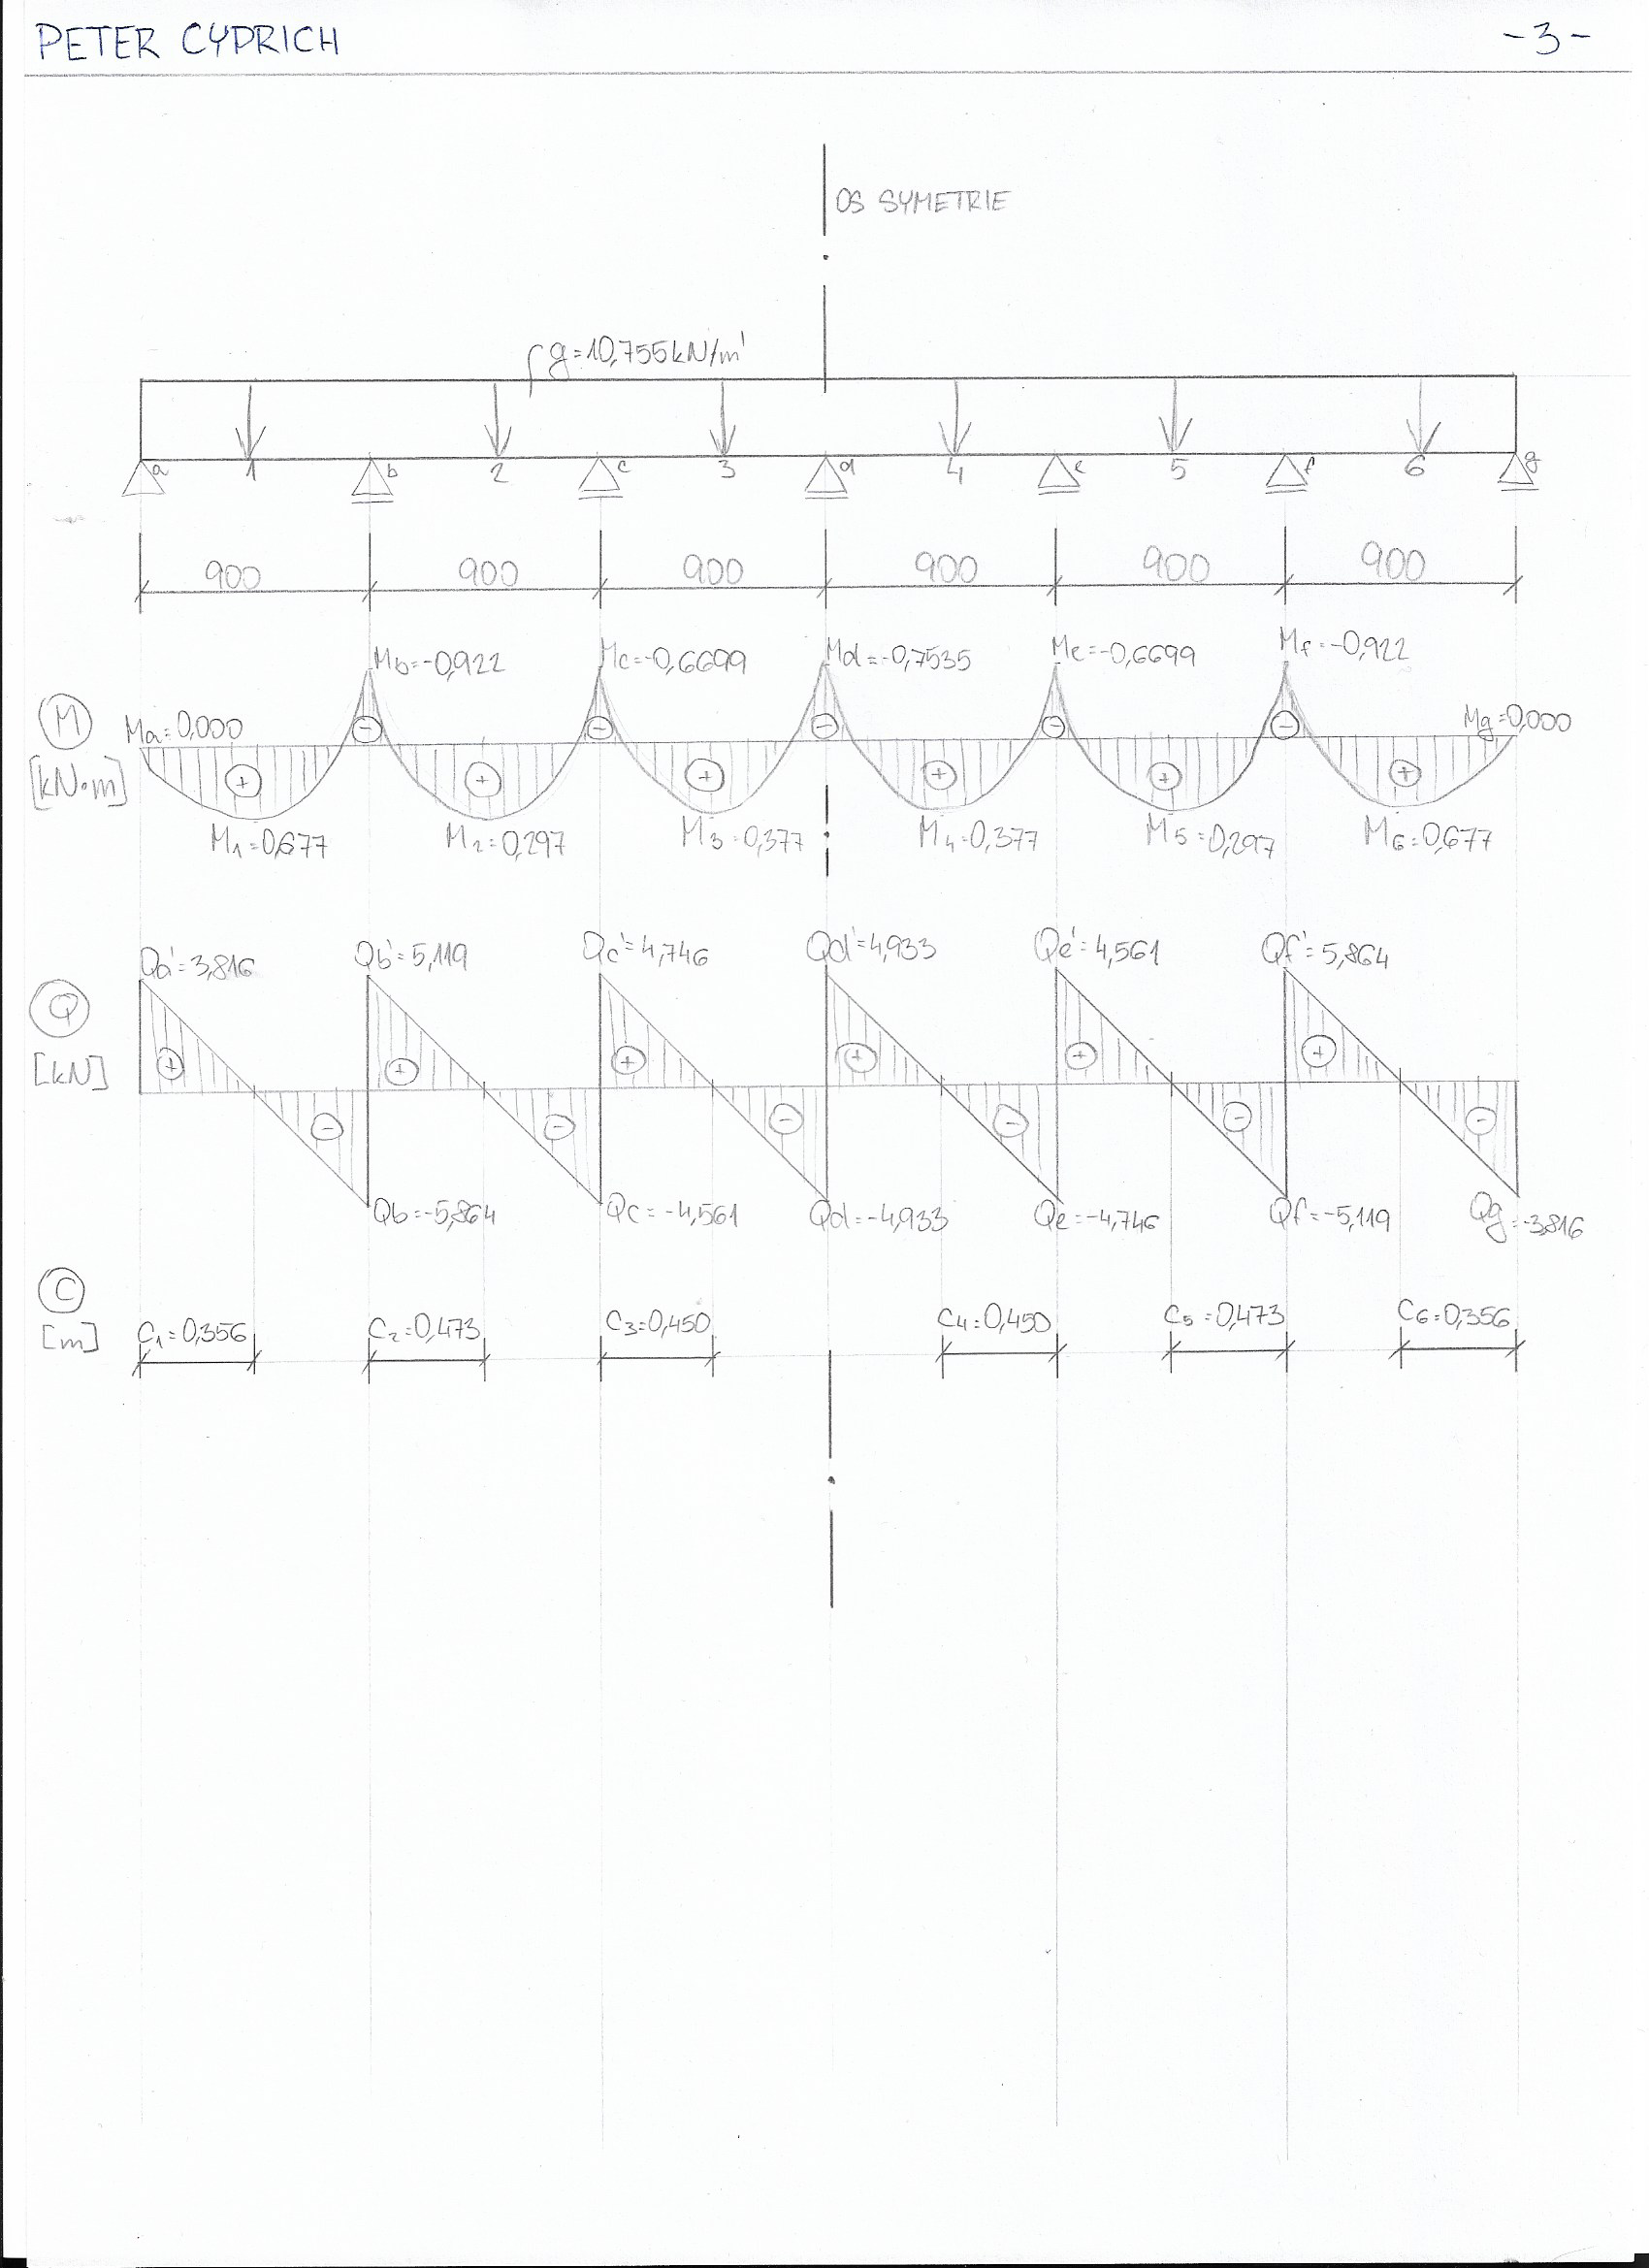 PETER CYPRICH -3-
OS SYMETRIE
g=10,755kN/m'
a 1 b 2 c 3 d 4 e 5 f 6 g
900 900 900 900 900 900
Mb=-0,922 Mc=-0,6699 Md=-0,7535 Me=-0,6699 Mf=-0,922
M Ma=0,000 Mg=0,000
- - - - -
[kN·m] + + + + + +
M1=0,677 M2=0,297 M3=0,377 M4=0,377 M5=0,297 M6=0,677
Qa'=3,816 Qb'=5,119 Qc'=4,746 Qd'=4,933 Qe'=4,561 Qf'=5,864
Q
[kN] + + + + + +
- - - - - -
Qb=-5,864 Qc=-4,561 Qd=-4,933 Qe=-4,746 Qf=-5,119 Qg=-3,816
C
[m] C1=0,356 C2=0,473 C3=0,450 C4=0,450 C5=0,473 C6=0,356